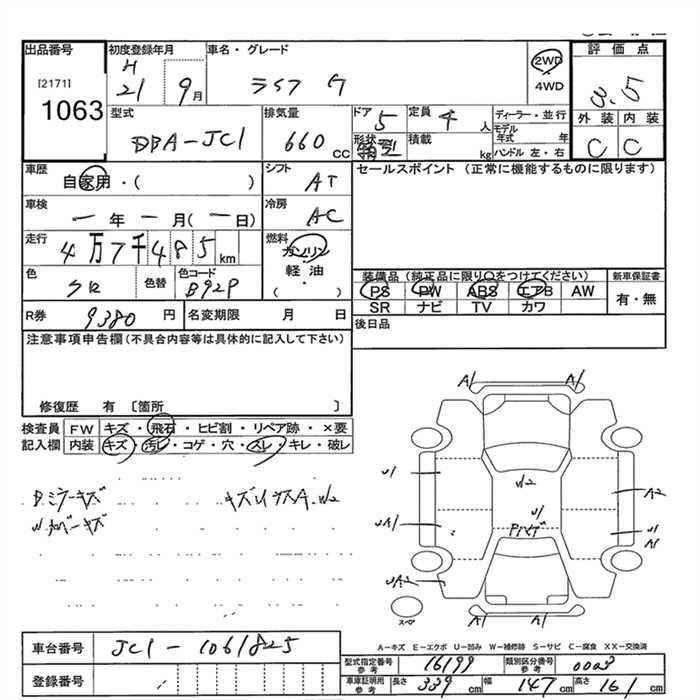 出品番号 初度登録年月 車名・グレード 評価点
[2171] 1063
H 21 9月 ライフ G 2WD 4WD 3.5
外装 内装
C C
型式 排気量 ドア 定員 ディーラー・並行
DBA-JC1 660cc 5 4人
形状 積載 kg モデル年式 年
ハンドル 左・右
車歴 自家用・( ) シフト AT セールスポイント (正常に機能するものに限ります)
車検 ー年ー月(ー日) 冷房 AC
走行 4万7千485km 燃料 ガソリン 軽油 ( )
色 クロ 色替 色コード B92P
装備品 (純正品に限り○をつけてください) 新車保証書
PS PW ABS エアB AW 有・無
SR ナビ TV カワ
R券 9380円 名変期限 月 日 後日品
注意事項申告欄(不具合内容等は具体的に記入して下さい)
修復歴 有 〔箇所 〕
検査員 FW キズ・飛石・ヒビ割・リペア跡・×要
記入欄 内装 キズ・汚レ・コゲ・穴・スレ・キレ・破レ
D.ミラーキズ
A1 A1
W2
U1 U1 A2
UA1 U1 A1
UA2
A1 A1
スペア
A-キズ E-エクボ U-凹み W-補修跡 S-サビ C-腐食 XX-交換済
車台番号 JC1-1061825
登録番号
型式指定番号 参考 16199 類別区分番号 参考 0003
車庫証明用 参考 長さ 339cm 幅 147cm 高さ 161cm